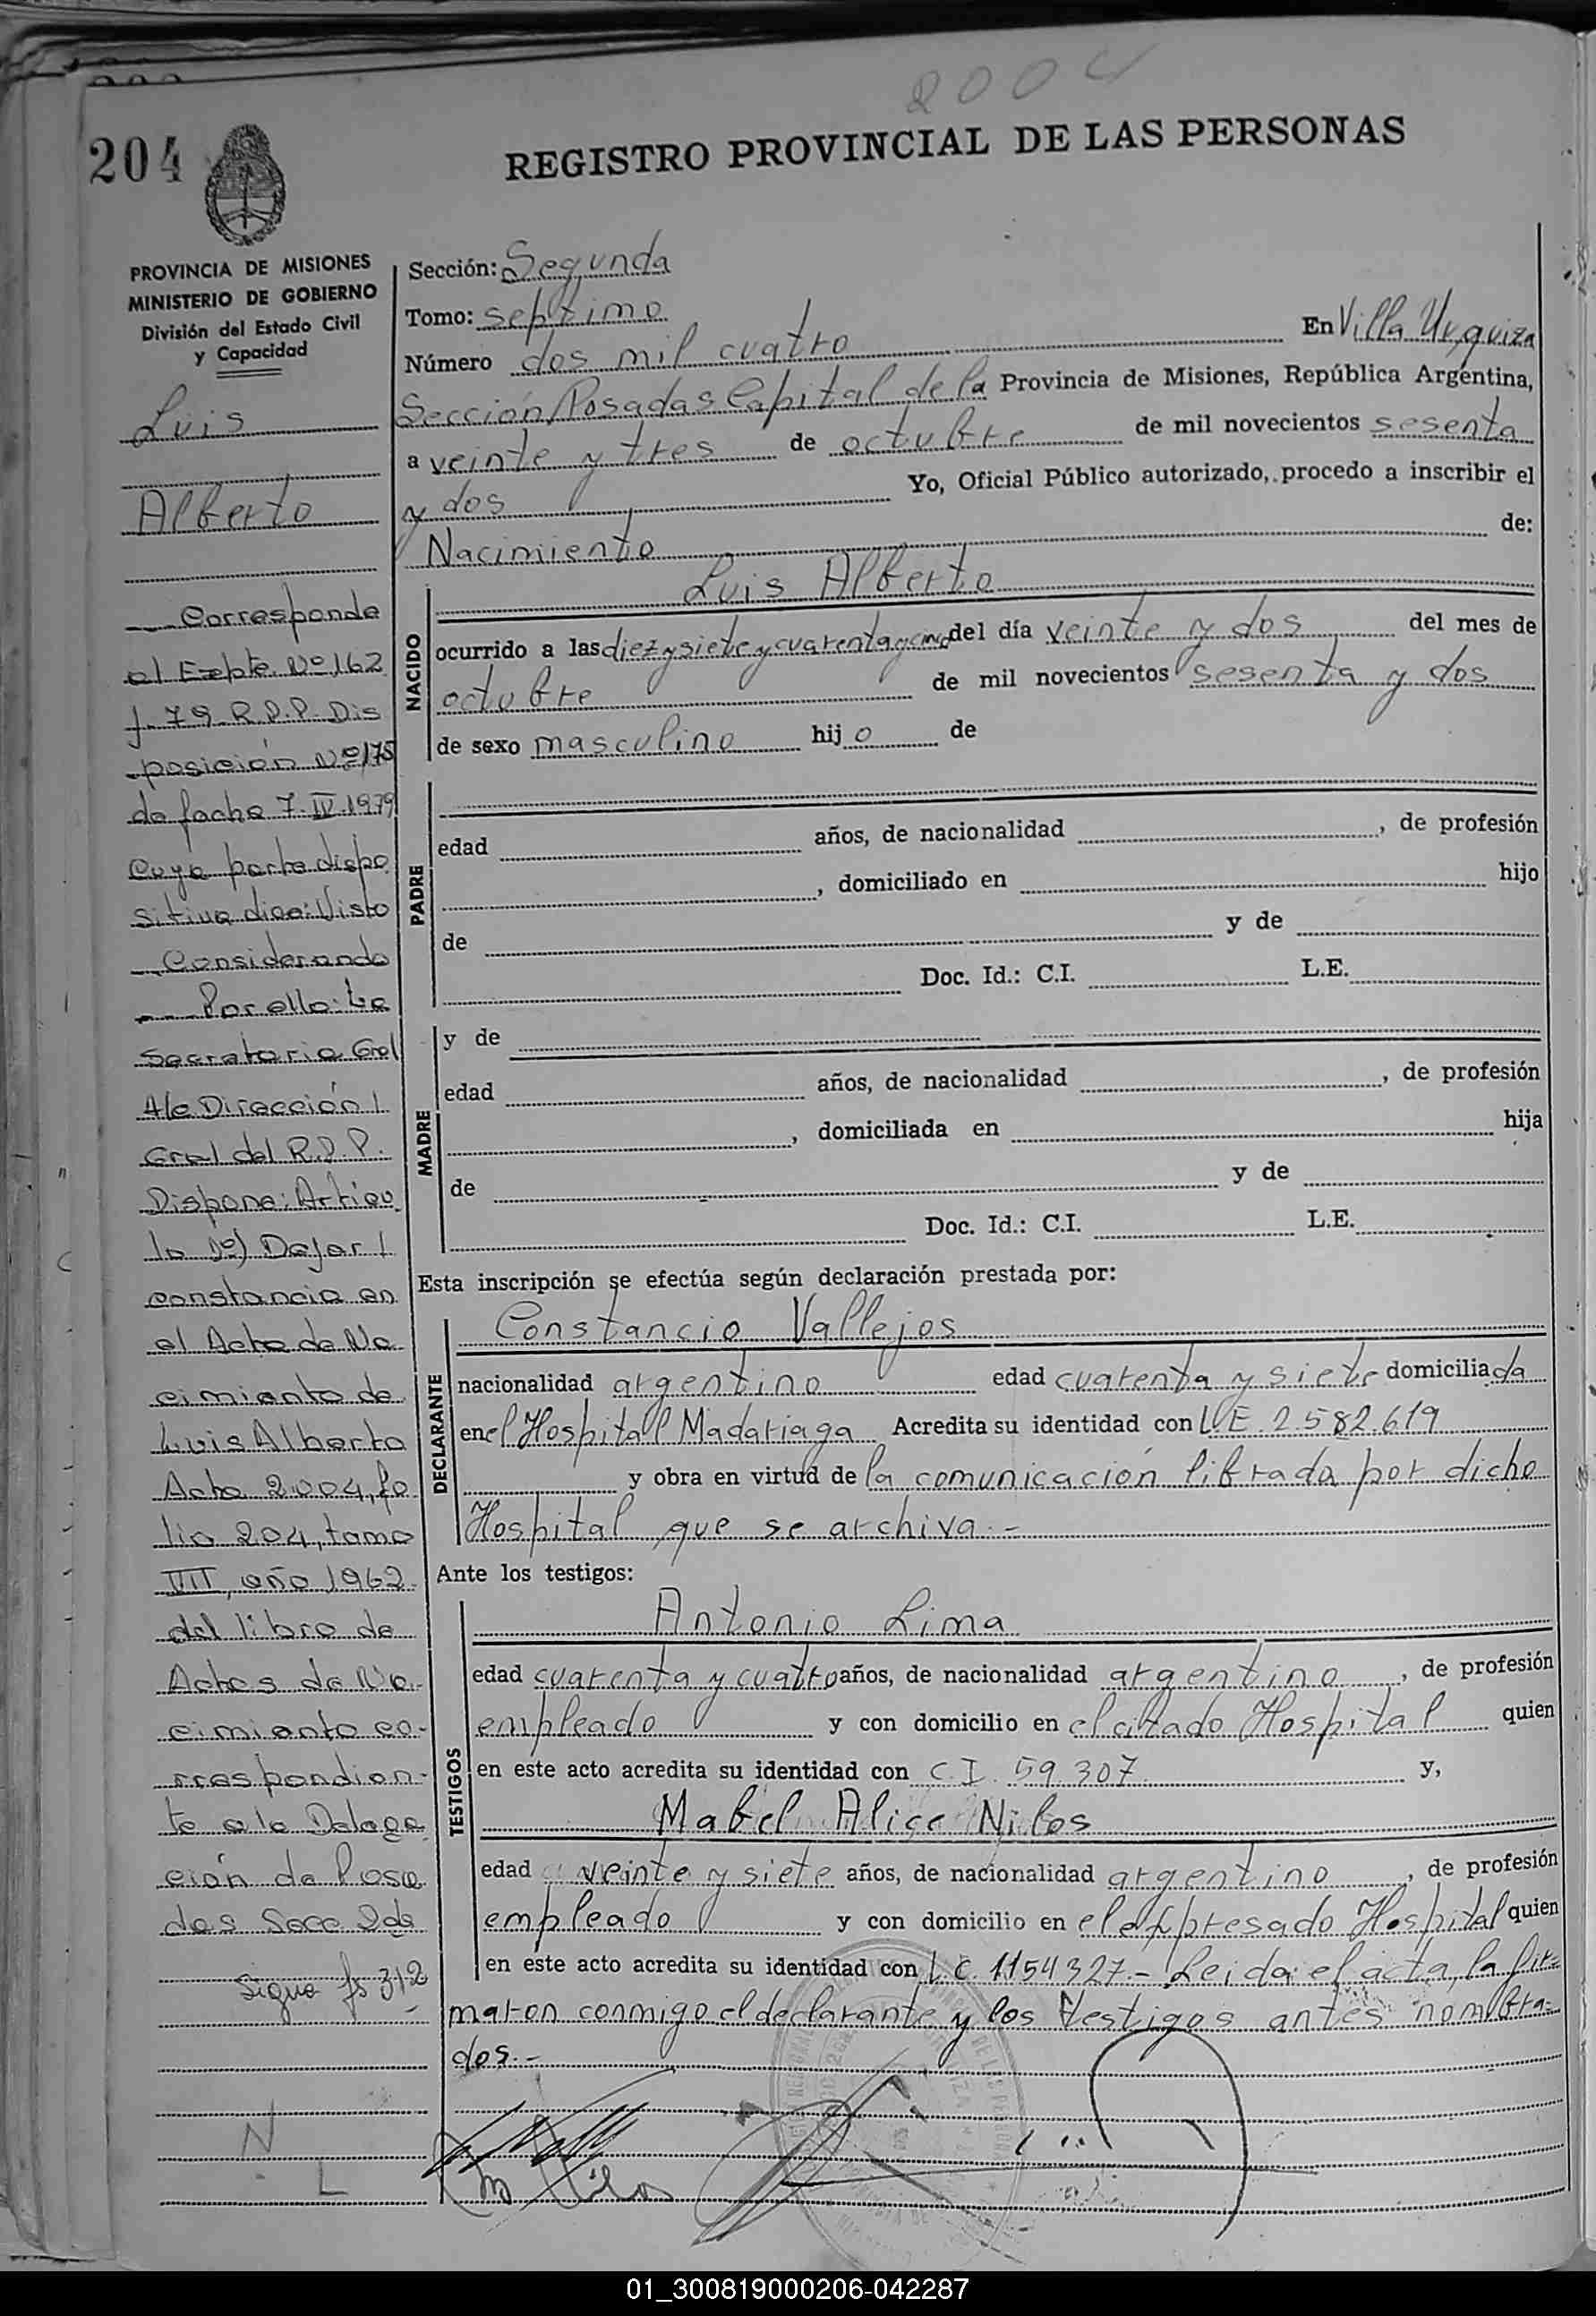 2004
204
REGISTRO PROVINCIAL DE LAS PERSONAS
PROVINCIA DE MISIONES
MINISTERIO DE GOBIERNO
División del Estado Civil
y Capacidad
Luis
Alberto
Corresponde
al Expte. Nº 162
f. 79 R.P.P. Dis
posición Nº 175
de fecha 7.IV.1979
Cuya parte dispo
sitiva dice: Visto
Considerando
Por ello: La
Secretaria Gral
A/c Dirección
Gral del R.P.P.
Dispone: Artícu
lo 1º) Dejar
constancia en
el Acta de Na
cimiento de
Luis Alberto
Acta 2004, fo
lio 204, tomo
VII, año 1962
del libro de
Actas de Na
cimiento co-
rrespondien-
te a la Delega
ción de Posa
das Secc 2da
Sigue fs 312
N
L
Sección: Segunda
Tomo: septimo
Número dos mil cuatro En Villa Urquiza
Sección, Posadas Capital de la Provincia de Misiones, República Argentina,
a veinte y tres de octubre de mil novecientos sesenta
y dos Yo, Oficial Público autorizado, procedo a inscribir el
Nacimiento de:
NACIDO
Luis Alberto
ocurrido a las diez y siete y cuarenta y cinco del día veinte y dos del mes de
octubre de mil novecientos sesenta y dos
de sexo masculino hijo de
PADRE
edad años, de nacionalidad , de profesión
, domiciliado en hijo
de y de
Doc. Id.: C.I. L.E.
MADRE
y de
edad años, de nacionalidad , de profesión
, domiciliada en hija
de y de
Doc. Id.: C.I. L.E.
Esta inscripción se efectúa según declaración prestada por:
DECLARANTE
Constancio Vallejos
nacionalidad argentino edad cuarenta y siete domiciliada
en el Hospital Madariaga Acredita su identidad con L.E. 2.582.619
y obra en virtud de la comunicación librada por dicho
Hospital que se archiva.-
Ante los testigos:
TESTIGOS
Antonio Lima
edad cuarenta y cuatro años, de nacionalidad argentino, de profesión
empleado y con domicilio en el citado Hospital quien
en este acto acredita su identidad con C.I. 59.307 y,
Mabel Alice Nilos
edad veinte y siete años, de nacionalidad argentino, de profesión
empleado y con domicilio en el expresado Hospital quien
en este acto acredita su identidad con L.C. 1154327.- Leida el acta, la fir=
maron conmigo el declarante y los testigos antes nombra=
dos.-
01_300819000206-042287